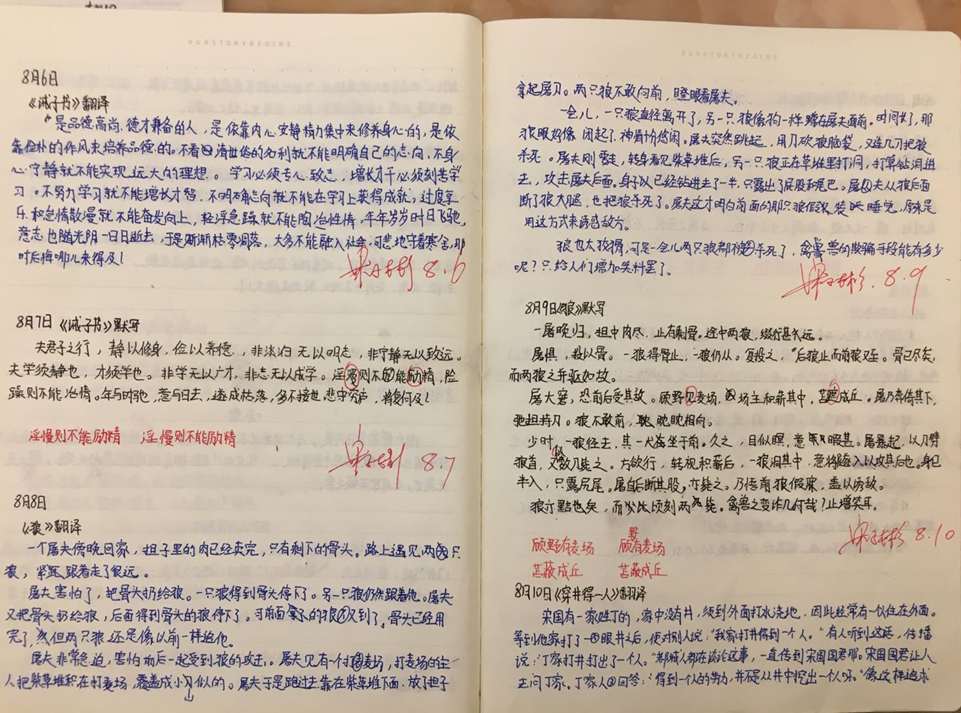 8月6日
《诫子书》翻译
是品德高尚、德才兼备的人，是依靠内心安静精力集中来修养身心的，是依
靠俭朴的作风来培养品德的。不看清世俗的名利就不能明确自己的志向，不身
心宁静就不能实现远大的理想。学习必须专心致志，增长才干必须刻苦学
习。不努力学习就不能增长才智，不明确志向就不能在学习上获得成就，过度享
乐和怠惰散漫就不能奋发向上，轻浮急躁就不能陶冶性情。年年岁岁时日飞驰，
意志也随光阴一日日逝去，于是渐渐枯零凋落，大多不能融入社会，可悲地守着寒舍，那
时后悔哪儿来得及！
8.6
8月7日《诫子书》默写
夫君子之行，静以修身，俭以养德，非淡泊无以明志，非宁静无以致远。
夫学须静也，才须学也。非学无以广才，非志无以成学。淫慢则不能励精，险
躁则不能冶性。年与时驰，意与日去，遂成枯落，多不接世，悲守穷庐，将复何及！
淫慢则不能励精 淫慢则不能励精
8.7
8月8日
《狼》翻译
一个屠夫傍晚回家，担子里的肉已经卖完，只有剩下的骨头。路上遇见两只
狼，紧跟着走了很远。
屠夫害怕了，把骨头扔给狼。一只狼得到骨头停下了。另一只狼仍然跟着他。屠夫
又把骨头扔给狼，后面得到骨头的狼停下了，可前面的狼又到了。骨头已经用
完了，但两只狼还是像以前一样追他。
屠夫非常急迫，害怕前后一起受到狼的攻击。屠夫见有个打麦场，打麦场的主
人把柴草堆积在打麦场，覆盖成小丘似的。屠夫于是跑过去靠在柴草堆下面，放下担子
拿起屠刀。两只狼不敢向前，瞪眼看屠夫。
一会儿，一只狼直径离开了，另一只狼像狗一样蹲在屠夫面前。时间长了，那
狼眼好像闭起了，神情悠然。屠夫突然跳起，用刀砍狼脑袋，又连几刀把狼
杀死。屠夫刚要走，转身看见柴草堆后，另一只狼正在草堆里打洞，打算钻洞进
去，攻击屠夫后面。身子以已经钻进去了一半，只露出了屁股和尾巴。屠夫从狼后面
断了狼大腿，也把狼杀死了。屠夫这才明白前面的那只狼假装睡觉，原来是
用这方式来诱惑敌方。
狼也太狡猾，可是一会儿两只狼都被杀死了，禽兽的欺骗手段能有多少
呢？只给人们增加笑料罢了。
8.9
8月9日《狼》默写
一屠晚归，担中肉尽，止有剩骨。途中两狼，缀行甚远。
屠惧，投以骨。一狼得骨止，一狼仍从。复投之，后狼止而前狼又至。骨已尽矣，
而两狼之并驱如故。
屠大窘，恐前后受其敌。顾野有麦场，场主积薪其中，苫蔽成丘。屠乃奔倚其下，
弛担持刀。狼不敢前，眈眈相向。
少时，一狼径去，其一犬坐于前。久之，目似瞑，意暇甚。屠暴起，以刀劈
狼首，又数刀毙之。方欲行，转视积薪后，一狼洞其中，意将隧入以攻其后也。身已
半入，只露尻尾。屠自后断其股，亦毙之。乃悟前狼假寐，盖以诱敌。
狼亦黠也矣，而少比顷刻两毙，禽兽之变诈几何哉？止增笑耳。
顾野有麦场 顾野有麦场
苫蔽成丘 苫蔽成丘
8.10
8月10日《穿井得一人》翻译
宋国有一家姓丁的，家中没有井，须到外面打水浇地，因此经常有一似住在外面。
等到他家打了一眼井后，便对别人说：“我家打井得到一个人。”有人听到这话，传播
说：“丁家打井打出了一个人。”都城人都在谈论这事，一直传到宋国国君那。宋国国君让人
去问丁家。丁家人回答：“得到一个人的劳力，并不是从井中挖出一个人呀。”像这样追求